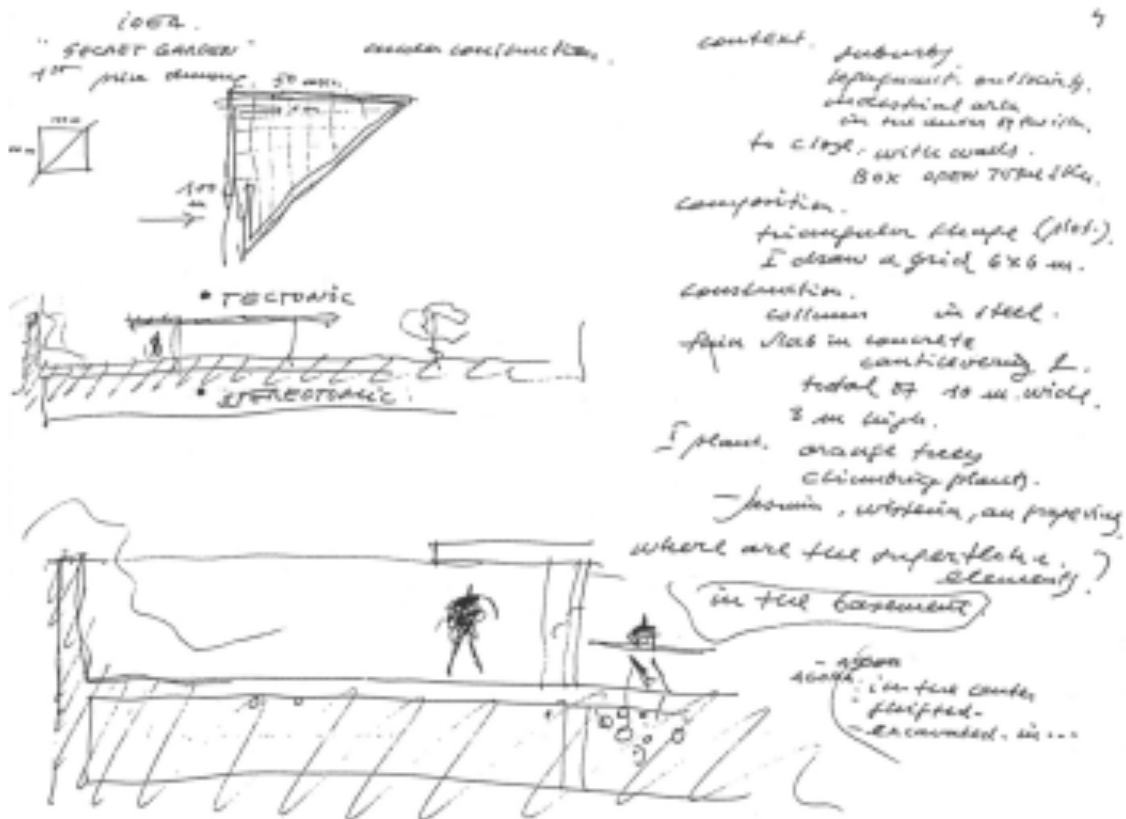 IDEA.
"SECRET GARDEN"
under construction.
1st
50 m
100
m
• TECTONIC
• STEREOTOMIC.
context.
suburbs.
outskirts.
industrial area
in the center of
to close. with walls.
BOX OPEN TO THE SKY.
composition.
triangular shape (plot).
I draw a grid 6x6 m.
construction.
columns in steel.
slab in concrete
cantilevering 2.
total of 10 m. wide.
3 m high.
I plant. orange trees
climbing plants.
- Jasmin, wisteria,
where are the
elements?
in the basement
in the center
- shifted -
- excavated. in ...